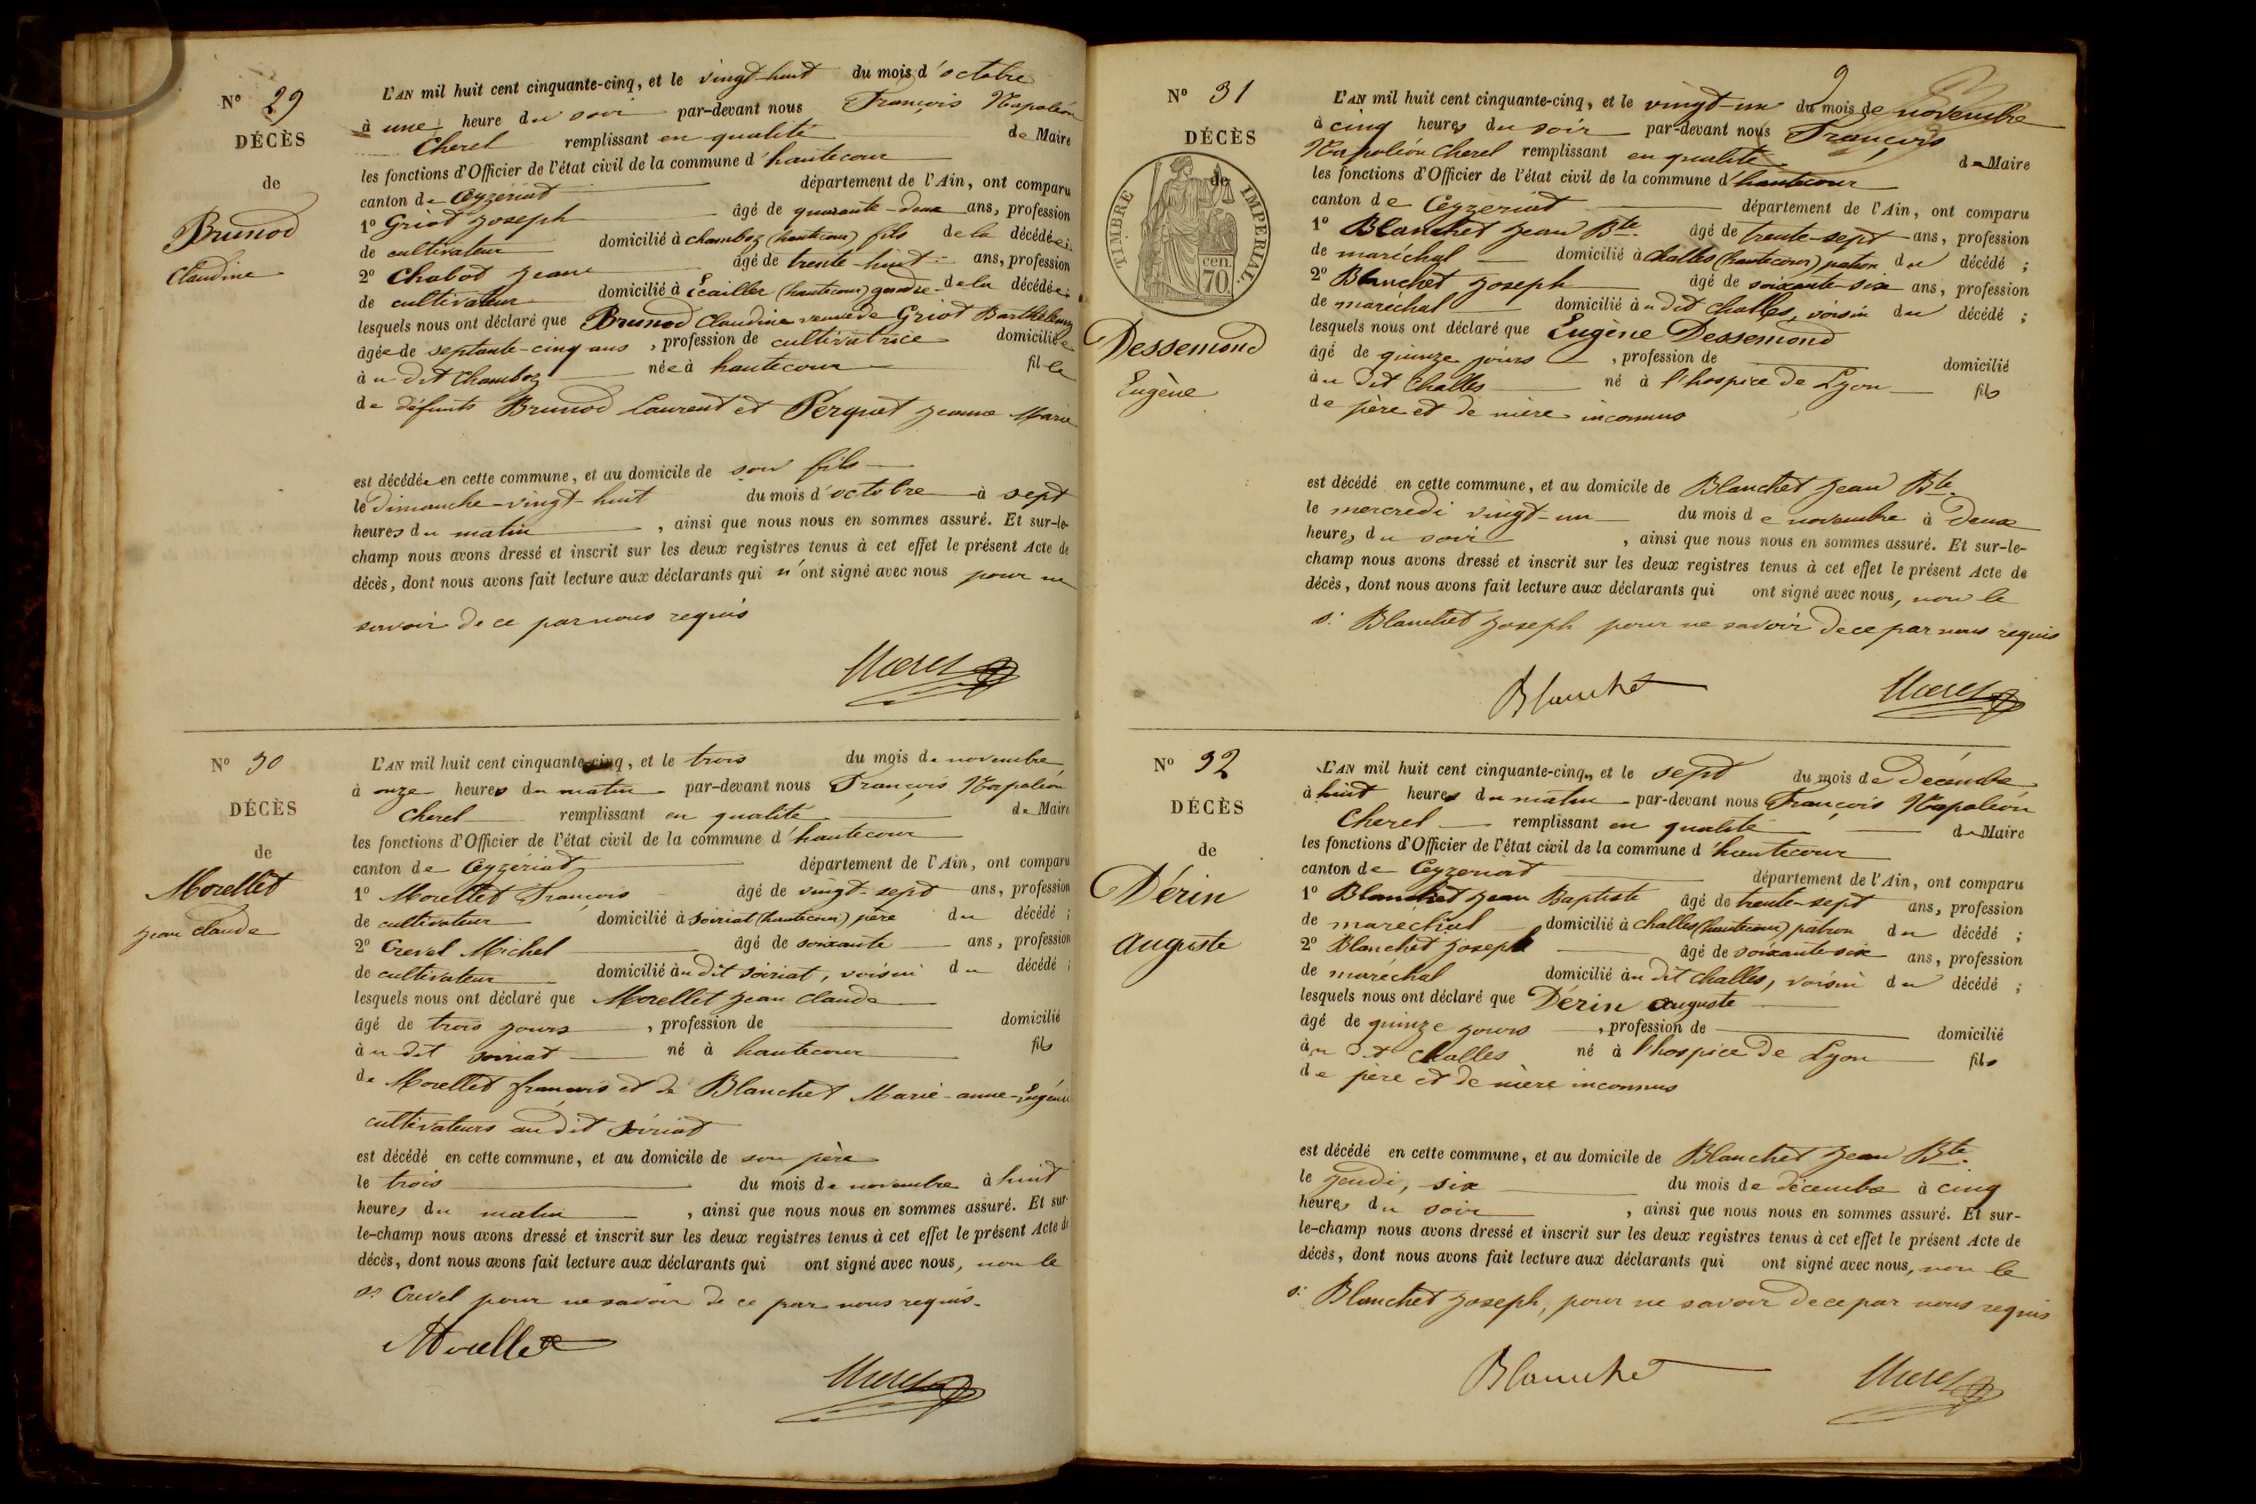 N° 29
DÉCÈS
de
Brunod
Claudine
L'AN mil huit cent cinquante-cinq, et le vingt-huit du mois d'octobre
à une heure du soir par-devant nous François Napoléon
Cherel remplissant en qualité de Maire
les fonctions d'Officier de l'état civil de la commune d'hautecour
canton de Ceyzériat département de l'Ain, ont comparu
1° Griot Joseph âgé de quarante-deux ans, profession
de cultivateur domicilié à chamboz (hautecour) fils de la décédée;
2° Chabot Jean âgé de trente-huit ans, profession
de cultivateur domicilié à Ecailler (hautecour) gendre de la décédée;
lesquels nous ont déclaré que Brunod Claudine veuve de Griot Barthélemy
âgée de septante-cinq ans, profession de cultivatrice domiciliée
à u dit Chamboz née à hautecour fille
de défunts Brunod Laurent et Perquet Jeanne Marie
est décédée en cette commune, et au domicile de son fils
le dimanche vingt-huit du mois d'octobre à sept
heures du matin, ainsi que nous nous en sommes assuré. Et sur-le-
champ nous avons dressé et inscrit sur les deux registres tenus à cet effet le présent Acte de
décès, dont nous avons fait lecture aux déclarants qui n'ont signé avec nous pour ne
savoir de ce par nous requis
Cherel
N° 30
DÉCÈS
de
Morellet
Jean Claude
L'AN mil huit cent cinquante-cinq, et le trois du mois de novembre
à onze heures du matin par-devant nous François Napoléon
Cherel remplissant en qualité de Maire
les fonctions d'Officier de l'état civil de la commune d'hautecour
canton de Ceyzériat département de l'Ain, ont comparu
1° Morellet François âgé de vingt-sept ans, profession
de cultivateur domicilié à Soiriat (hautecour) père du décédé;
2° Crevel Michel âgé de soixante ans, profession
de cultivateur domicilié à u dit Soiriat, voisin du décédé;
lesquels nous ont déclaré que Morellet Jean Claude
âgé de trois jours, profession de domicilié
à u dit soiriat né à hautecour fils
de Morellet françois et de Blanchet Marie-anne-Eugénie
cultivateurs au dit Soiriat
est décédé en cette commune, et au domicile de son père
le trois du mois de novembre à huit
heures du matin, ainsi que nous nous en sommes assuré. Et sur-
le-champ nous avons dressé et inscrit sur les deux registres tenus à cet effet le présent Acte de
décès, dont nous avons fait lecture aux déclarants qui ont signé avec nous, non le
sr Crevel pour ne savoir de ce par nous requis.
Morellet
Cherel
9
N° 31
DÉCÈS
de
TIMBRE IMPERIAL.
70 cen.
Dessemond
Eugène
L'AN mil huit cent cinquante-cinq, et le vingt-un du mois de novembre
à cinq heures du soir par-devant nous François
Napoléon Cherel remplissant en qualité de Maire
les fonctions d'Officier de l'état civil de la commune d'hautecour
canton de Ceyzériat département de l'Ain, ont comparu
1° Blanchet Jean Bte. âgé de trente-sept ans, profession
de maréchal domicilié à Challes (hautecour) patron du décédé;
2° Blanchet Joseph âgé de soixante-six ans, profession
de maréchal domicilié à u dit Challes, voisin du décédé;
lesquels nous ont déclaré que Eugène Dessemond
âgé de quinze jours, profession de domicilié
à u dit Challes né à l'hospice de Lyon fils
de père et de mère inconnus
est décédé en cette commune, et au domicile de Blanchet Jean Bte.
le mercredi vingt-un du mois de novembre à deux
heures du soir, ainsi que nous nous en sommes assuré. Et sur-le-
champ nous avons dressé et inscrit sur les deux registres tenus à cet effet le présent Acte de
décès, dont nous avons fait lecture aux déclarants qui ont signé avec nous, non le
s. Blanchet Joseph pour ne savoir de ce par nous requis
Blanchet
Cherel
N° 32
DÉCÈS
de
Dérin
auguste
L'AN mil huit cent cinquante-cinq, et le sept du mois de Décembre
à huit heures du matin par-devant nous François Napoléon
Cherel remplissant en qualité de Maire
les fonctions d'Officier de l'état civil de la commune d'hautecour
canton de Ceyzériat département de l'Ain, ont comparu
1° Blanchet Jean Baptiste âgé de trente-sept ans, profession
de maréchal domicilié à challes (hautecour) patron du décédé;
2° Blanchet Joseph âgé de soixante-six ans, profession
de maréchal domicilié à u dit challes, voisin du décédé;
lesquels nous ont déclaré que Dérin auguste
âgé de quinze jours, profession de domicilié
à u dit Challes né à l'hospice de Lyon fils
de père et de mère inconnus
est décédé en cette commune, et au domicile de Blanchet Jean Bte.
le jeudi, six du mois de décembre à cinq
heures du soir, ainsi que nous nous en sommes assuré. Et sur-
le-champ nous avons dressé et inscrit sur les deux registres tenus à cet effet le présent Acte de
décès, dont nous avons fait lecture aux déclarants qui ont signé avec nous, non le
s. Blanchet Joseph, pour ne savoir de ce par nous requis
Blanchet
Cherel